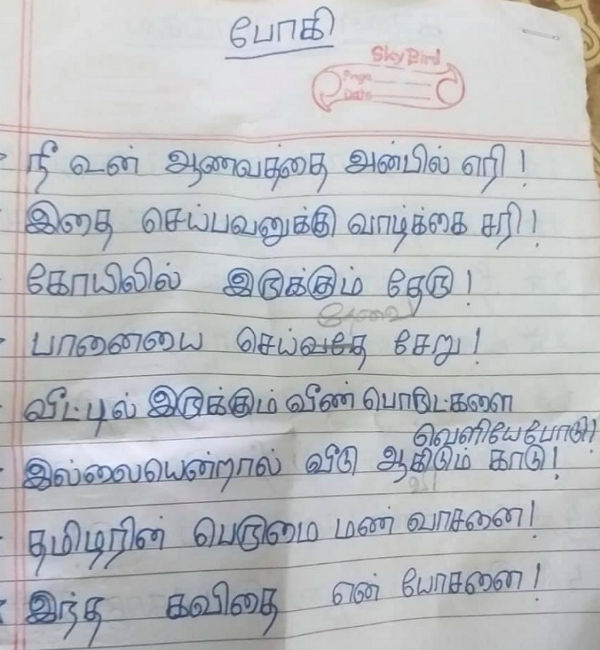 போகி
Sky Bird
Page
Date
நீ உன் ஆணவத்தை அன்பில் எரி!
இதை செய்பவனுக்கு வாழ்க்கை சரி!
கோயிலில் இருக்கும் தேரு!
தேவை
பானையை செய்வதே சேறு!
வீட்டில் இருக்கும் வீண் பொருட்களை
வெளியேபோடு!
இல்லையென்றால் வீடு ஆகிடும் காடு!
தமிழரின் பெருமை மண் வாசனை!
இந்த கவிதை என் யோசனை!